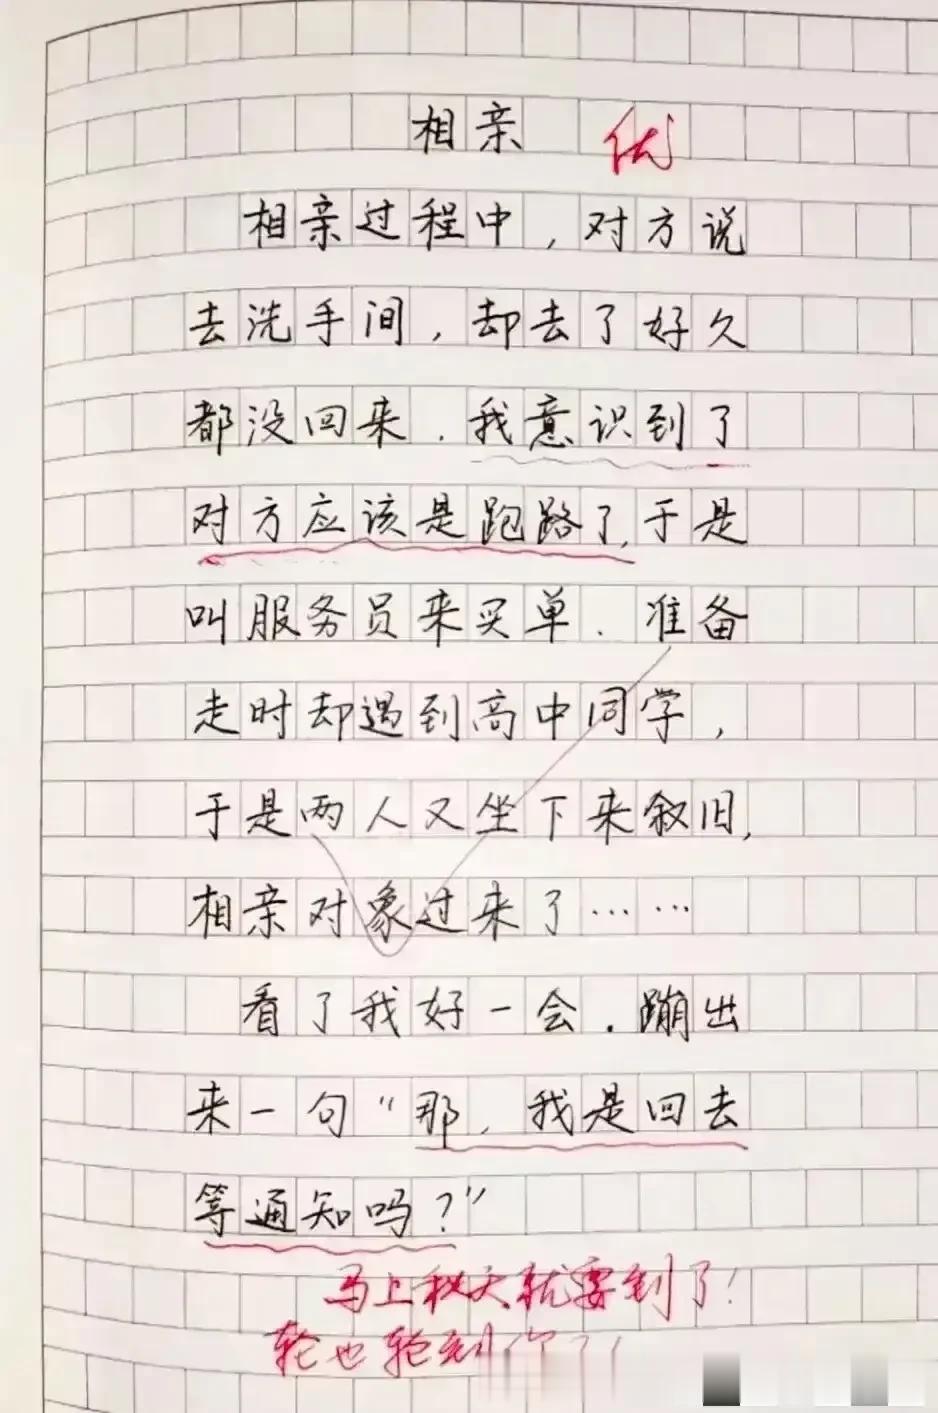 相亲 优
相亲过程中，对方说
去洗手间，却去了好久
都没回来．我意识到了
对方应该是跑路了，于是
叫服务员来买单．准备
走时却遇到高中同学，
于是两人又坐下来叙旧，
相亲对象过来了……
看了我好一会．蹦出
来一句“那，我是回去
等通知吗？”
马上秋天就要到了！
轮也轮到你了！